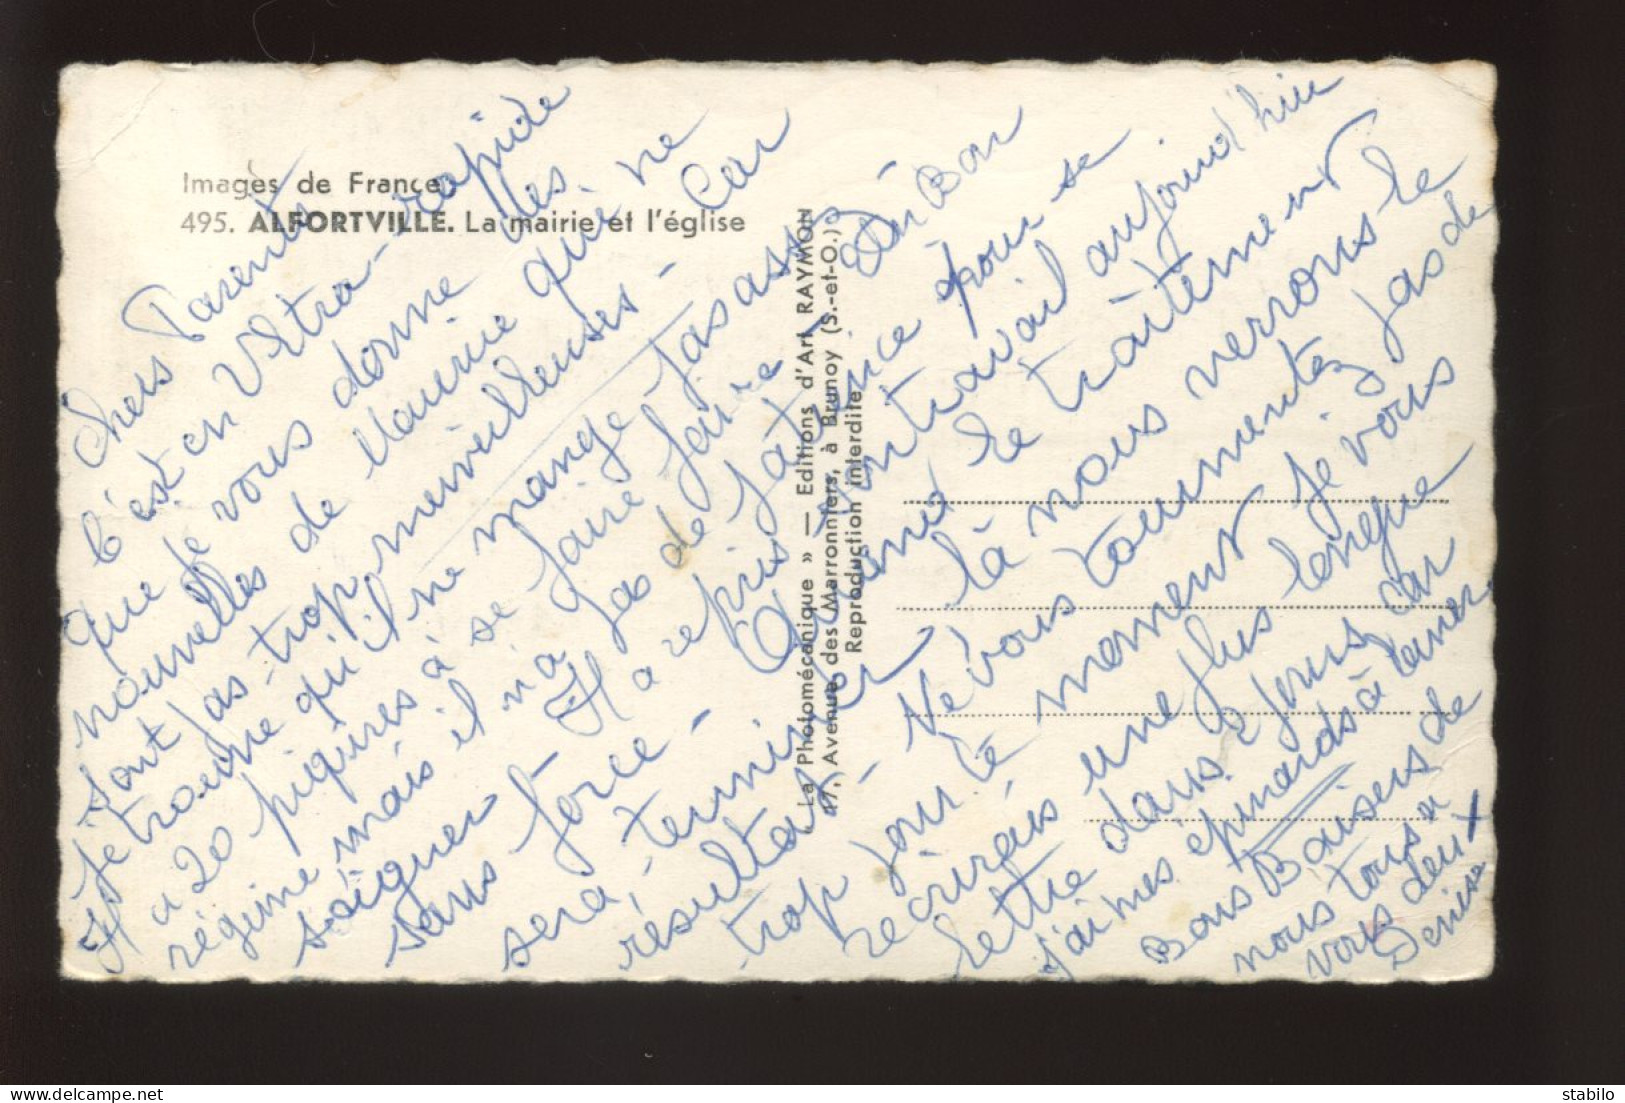 Images de France
495. ALFORTVILLE. La mairie et l'église
« La Photomécanique » — Editions d'Art RAYMON
47, Avenue des Marronniers, à Brunoy (S.-et-O.)
Reproduction interdite
Chers Parents
C'est en Ultra-rapide
que je vous donne des
nouvelles de Maurice qui ne
sont pas trop merveilleuses - Car
Je trouve qu'il ne mange pas assez
Il a 20 piqures à se faire faire et un Bon
régime mais il n'a pas de patience pour se
soigner Il a repris son travail aujourd'hui
sans force - Quand le traitement
sera terminer là nous verrons le
résultat - Ne vous tourmentez pas de
trop pour le moment Je vous
récrirais une plus longue
lettre dans 2 jours car
j'ai mes épinards à laver
Bons Baisers de
nous tous a
vous deux
Denise
stabilo